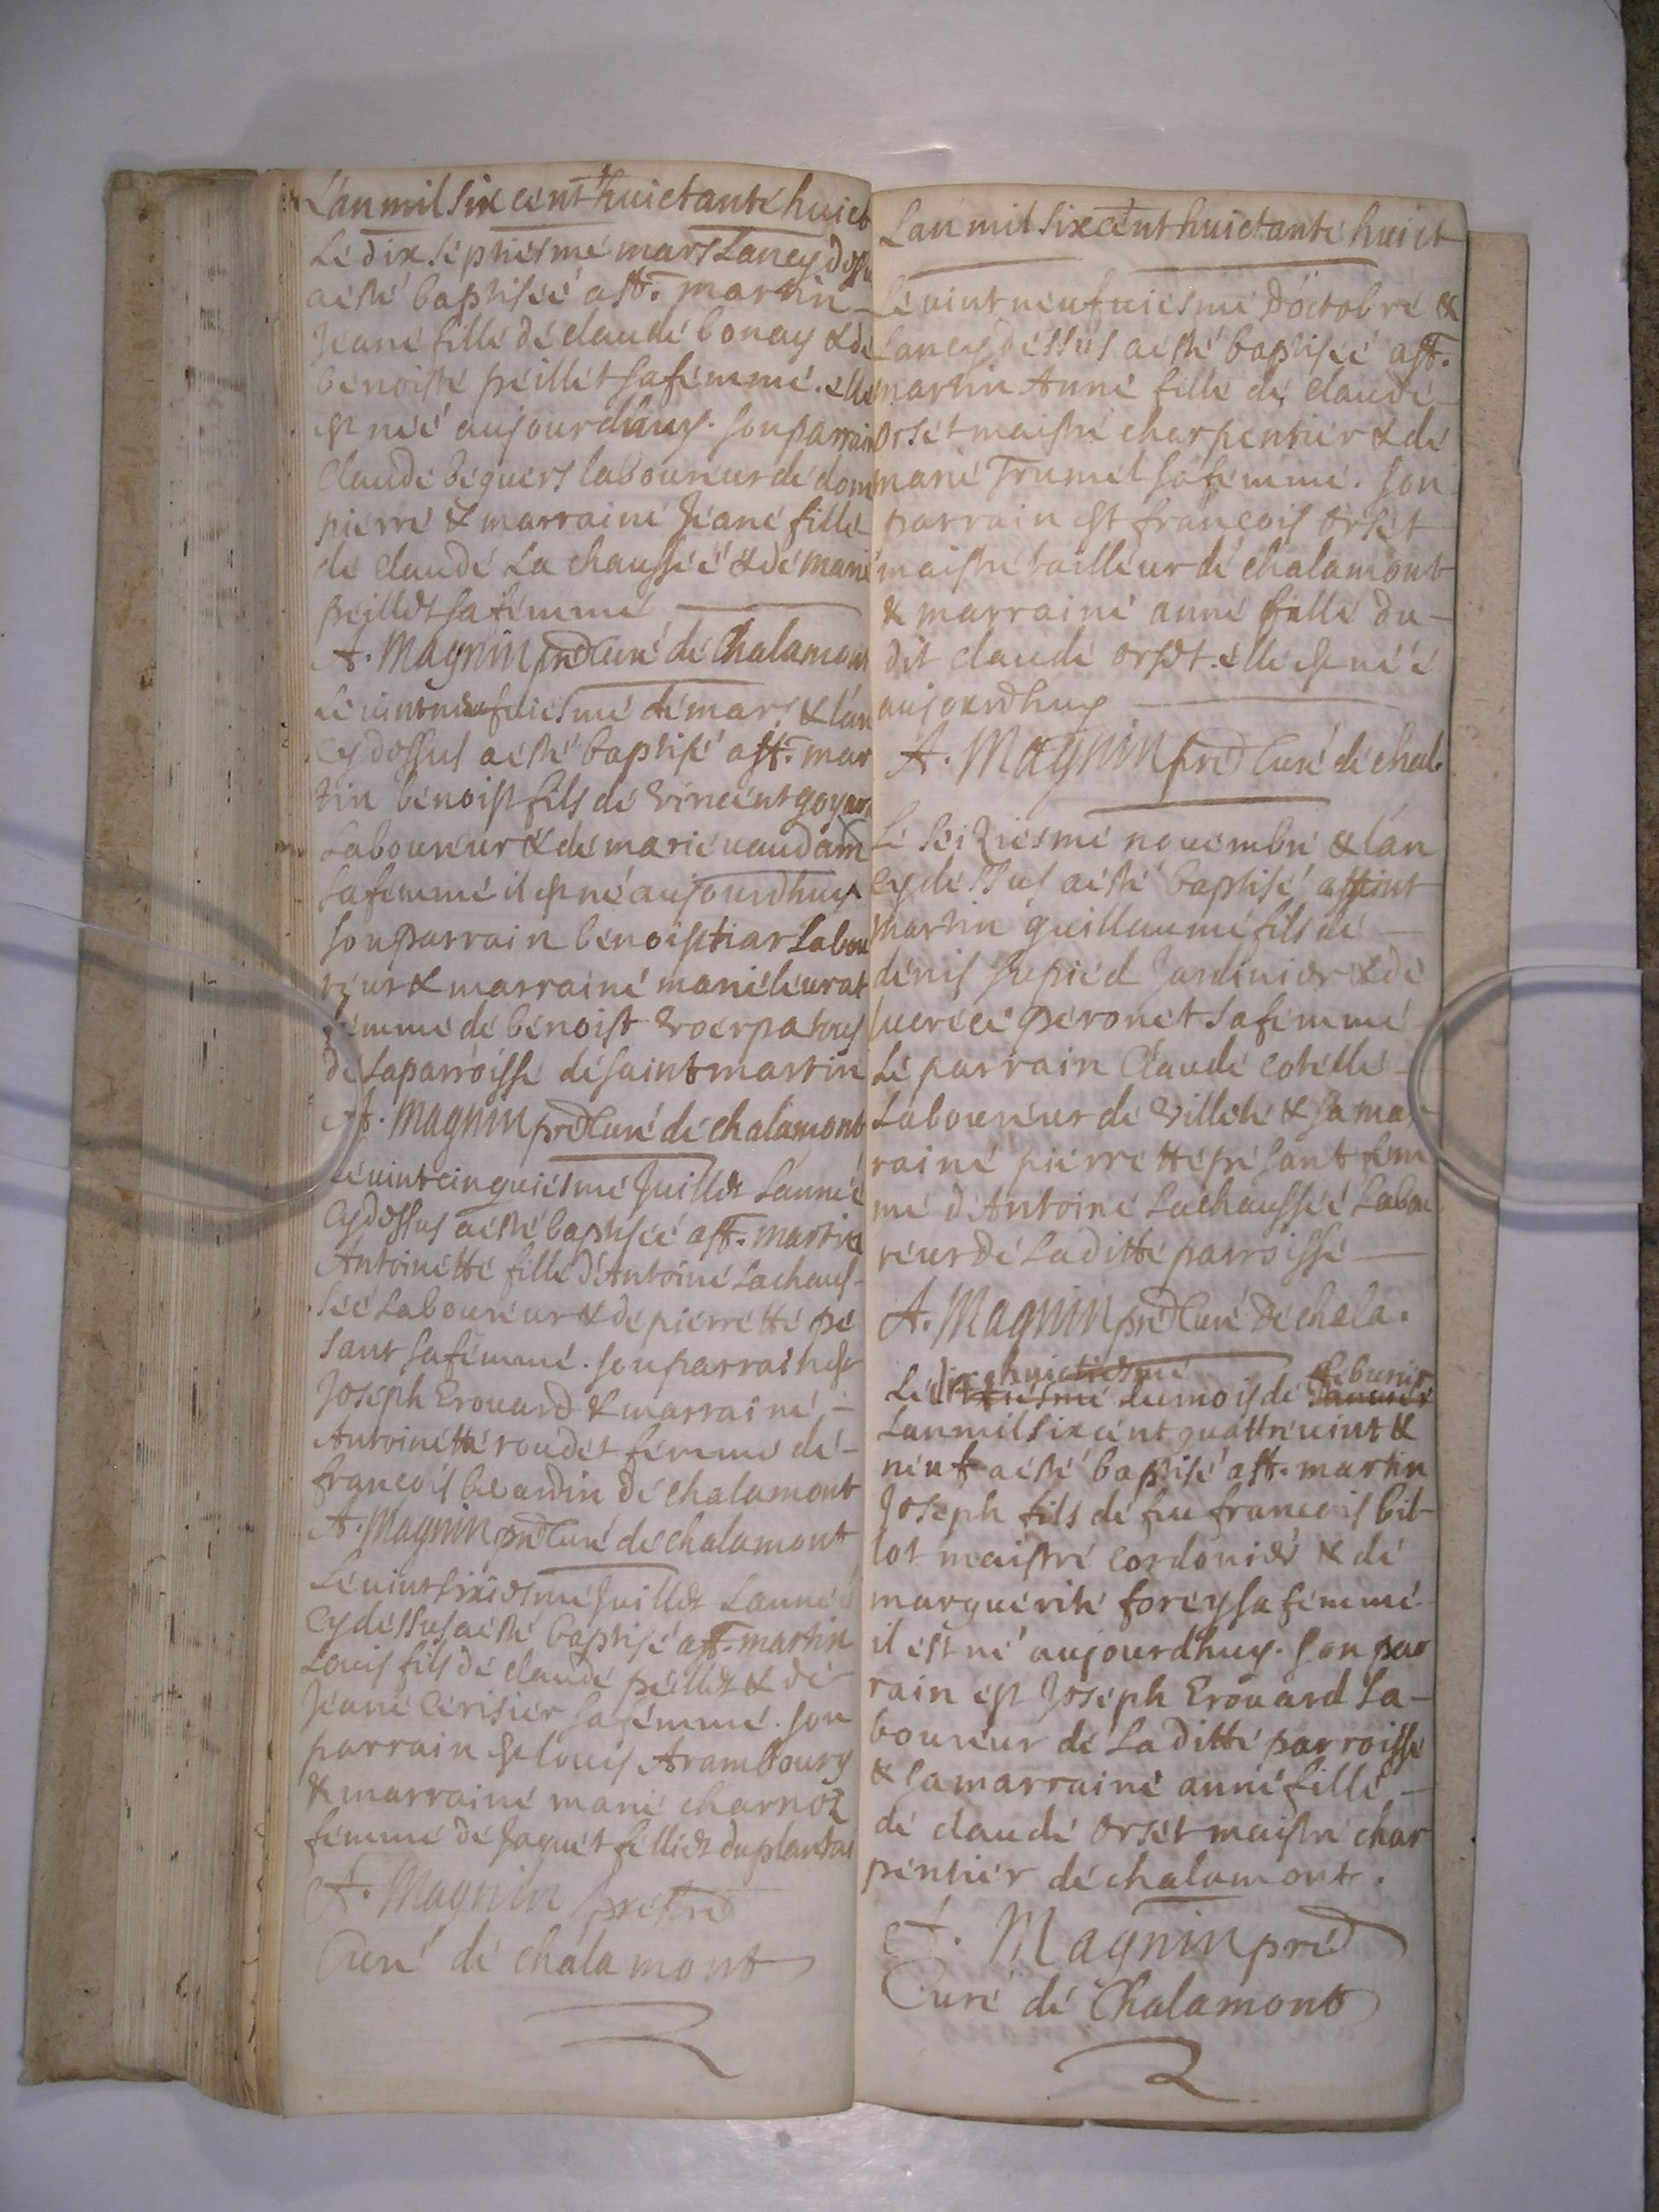 Lan mil six cent huictante huict
Le dix septiesme mars Lan cy dessu
a esté baptisée a st. martin
Jeane fille de claude bonay & de
benoiste peillet sa femme. elle
est née aujourdhuy. son parrain
Claude beguers laboureur de dom
pierre & marraine Jeane fille
de claude La chaussée & de marie
peillet sa femme
A. Magnin pre Curé de Chalamont
Le vint neufviesme de mars & l'an
cy dessus a esté baptisé a st. mar
tin benoist fils de vincent goyar
Laboureur & de marie vaudam
sa femme il est né aujourdhuy
son parrain benoist iar Labou
reur & marraine marie leurat
femme de benoist
de la parroisse de saint martin
A. Magnin pre Curé de chalamont
Le vint cinquiesme Juillet Lannée
Cy dessus a esté baptisée a st. martin
Antoinette fille d'Antoine Lachaus-
sée Laboureur & de pierrette pe
sant sa femme. son parrain est
Joseph Erouard & marraine
Antoinette roudet femme de
francois beardin de chalamont
A. Magnin pre Curé de chalamont
Le vint sixiesme Juillet Lannée
Cy dessus a esté baptisé a st. martin
Louis fils de claude peillet & de
Jeane Cerisier sa femme. son
parrain est louis Arambourg
& marraine marie charnoz
femme de Jaquet filliet du plantai
A. Magnin prestre
Curé de chalamont
Lan mil six cent huictante huict
Le vint neufviesme d'octobre &
Lan cy dessus a esté baptisée a st.
martin Anne fille de claude
orset maistre charpentier & de
marie Trumel sa femme. son
parrain est françois orset
maistre tailleur de chalamont
& marraine anne fille du-
dit claude orset. elle est née
aujourdhuy
A. Magnin pre Curé de chal.
Le seiziesme novembre & lan
cy dessus a esté baptisé a saint
martin guillaume fils de
denis supied Jardinier & de
lucrece peronet sa femme
Le parrain Claude cotelle
Laboureur de villete & sa mar
raine pierrette pesant fem
me d'Antoine Lachaussée Labou
reur de La ditte parroisse
A. Magnin pre Curé de chala.
huictiesme febvrier
Le dix du mois de Janvier
Lan mil six cent quattre vint &
neuf a esté baptisé a st. martin
Joseph fils de feu francois bil-
lot maistre cordonier & de
marguerite forey sa femme
il est né aujourdhuy. son par
rain est Joseph Erouard La-
boureur de La ditte parroisse
& sa marraine anne fille
de claude orset maistre char
pentier de chalamont.
A. Magnin pre
Curé de Chalamont